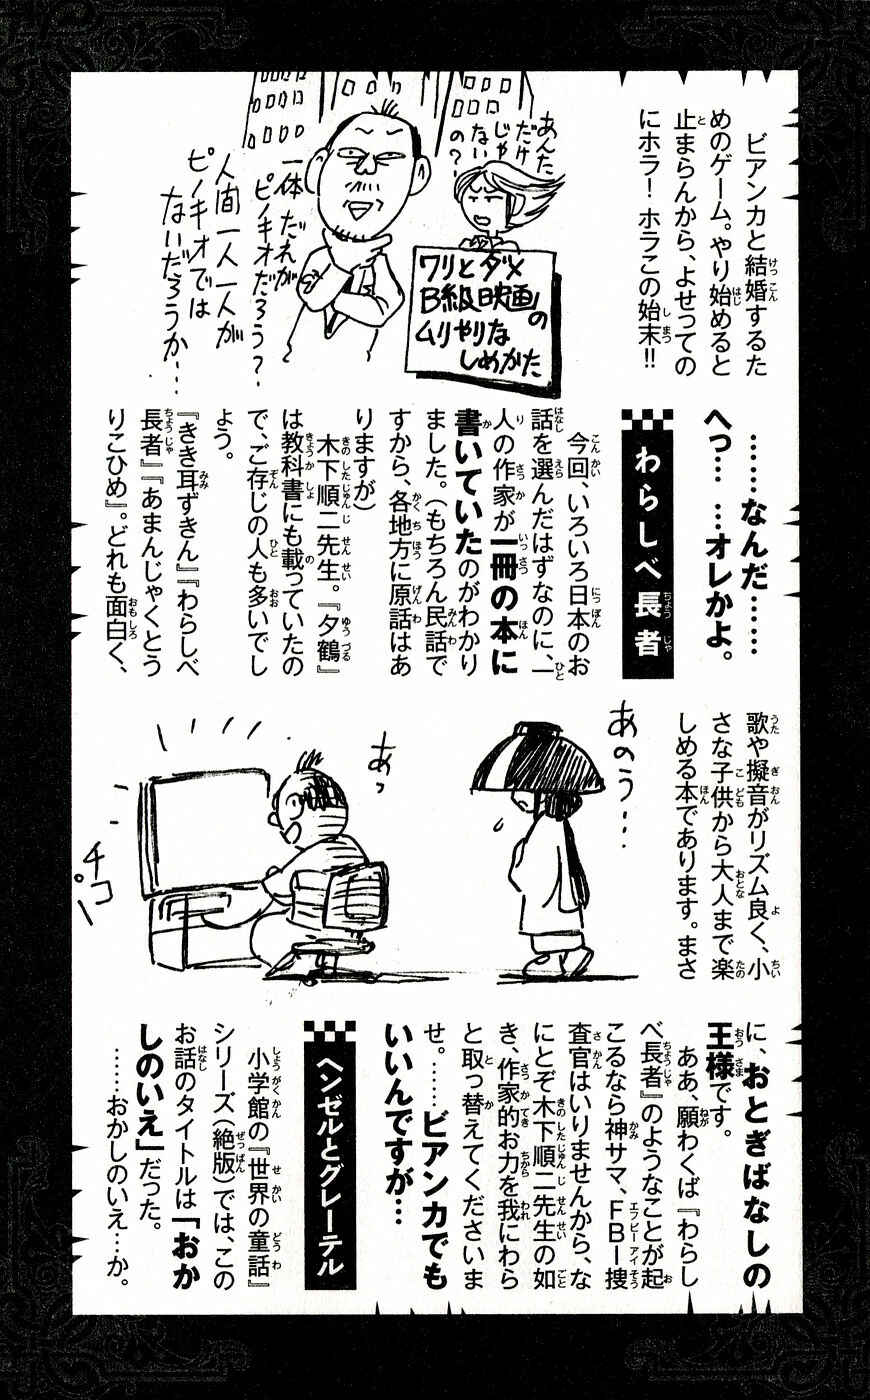 ビアンカと結婚するた
めのゲーム。やり始めると
止まらんから、よせっての
にホラ！ホラこの始末!!
あんた
だけ
じゃ
ない
の？
ワリとダメ
B級映画の
ムリやりな
しめかた
一体だれが
ピノキオだろう？
人間一人一人が
ピノキオでは
ないだろうか…
……なんだ……
へっ……オレかよ。
わらしべ長者
今回、いろいろ日本のお
話を選んだはずなのに、一
人の作家が一冊の本に
書いていたのがわかり
ました。(もちろん民話で
すから、各地方に原話はあ
りますが)
木下順二先生。『夕鶴』
は教科書にも載っていたの
で、ご存じの人も多いでし
ょう。
『きき耳ずきん』『わらしべ
長者』『あまんじゃくとう
りこひめ』。どれも面白く、
歌や擬音がリズム良く、小
さな子供から大人まで楽
しめる本であります。まさ
あのう…
あっ
チコーン
に、おとぎばなしの
王様です。
ああ、願わくば『わらし
べ長者』のようなことが起
こるなら神サマ、FBI捜
査官はいりませんから、な
にとぞ木下順二先生の如
き、作家的お力を我にわら
と取っ替えてくださいま
せ。……ビアンカでも
いいんですが…
ヘンゼルとグレーテル
小学館の『世界の童話』
シリーズ(絶版)では、この
お話のタイトルは「おか
しのいえ」だった。
……おかしのいえ…か。